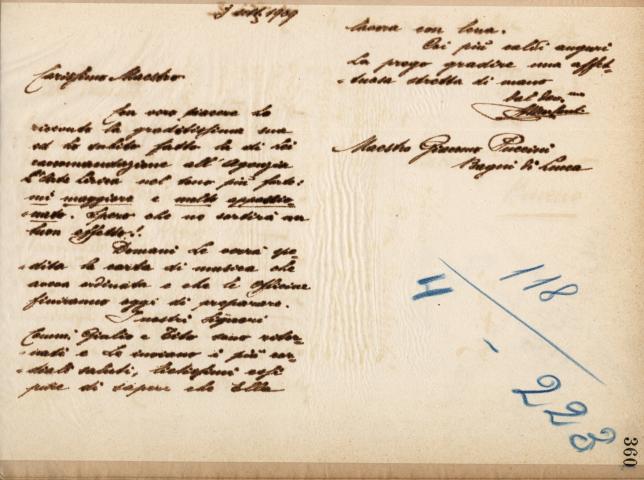 7 sett. 1909
Carissimo Maestro
Con vero piacere ho
ricevuto la graditissima sua
ed ho subito fatto la di Lei
raccomandazione all'Agenzia
nel tono più forte:
mi maggiore e molto appassio-
nato. Spero che no sortirà un
buon effetto!
Domani Le verrà spe-
dita la carta di musica che
aveva ordinata e che le Officine
finiranno oggi di preparare.
I nostri Signori
Comm. Giulio e Tito sono ritor-
nati e Le inviano i più cor-
diali saluti, lietissimi essi
pure di sapere che Ella
lavora con lena.
Coi più caldi auguri
La prego gradire una affet-
tuosa stretta di mano
dal
Maestro Giacomo Puccini
Bagni di Lucca
4
118
223
360